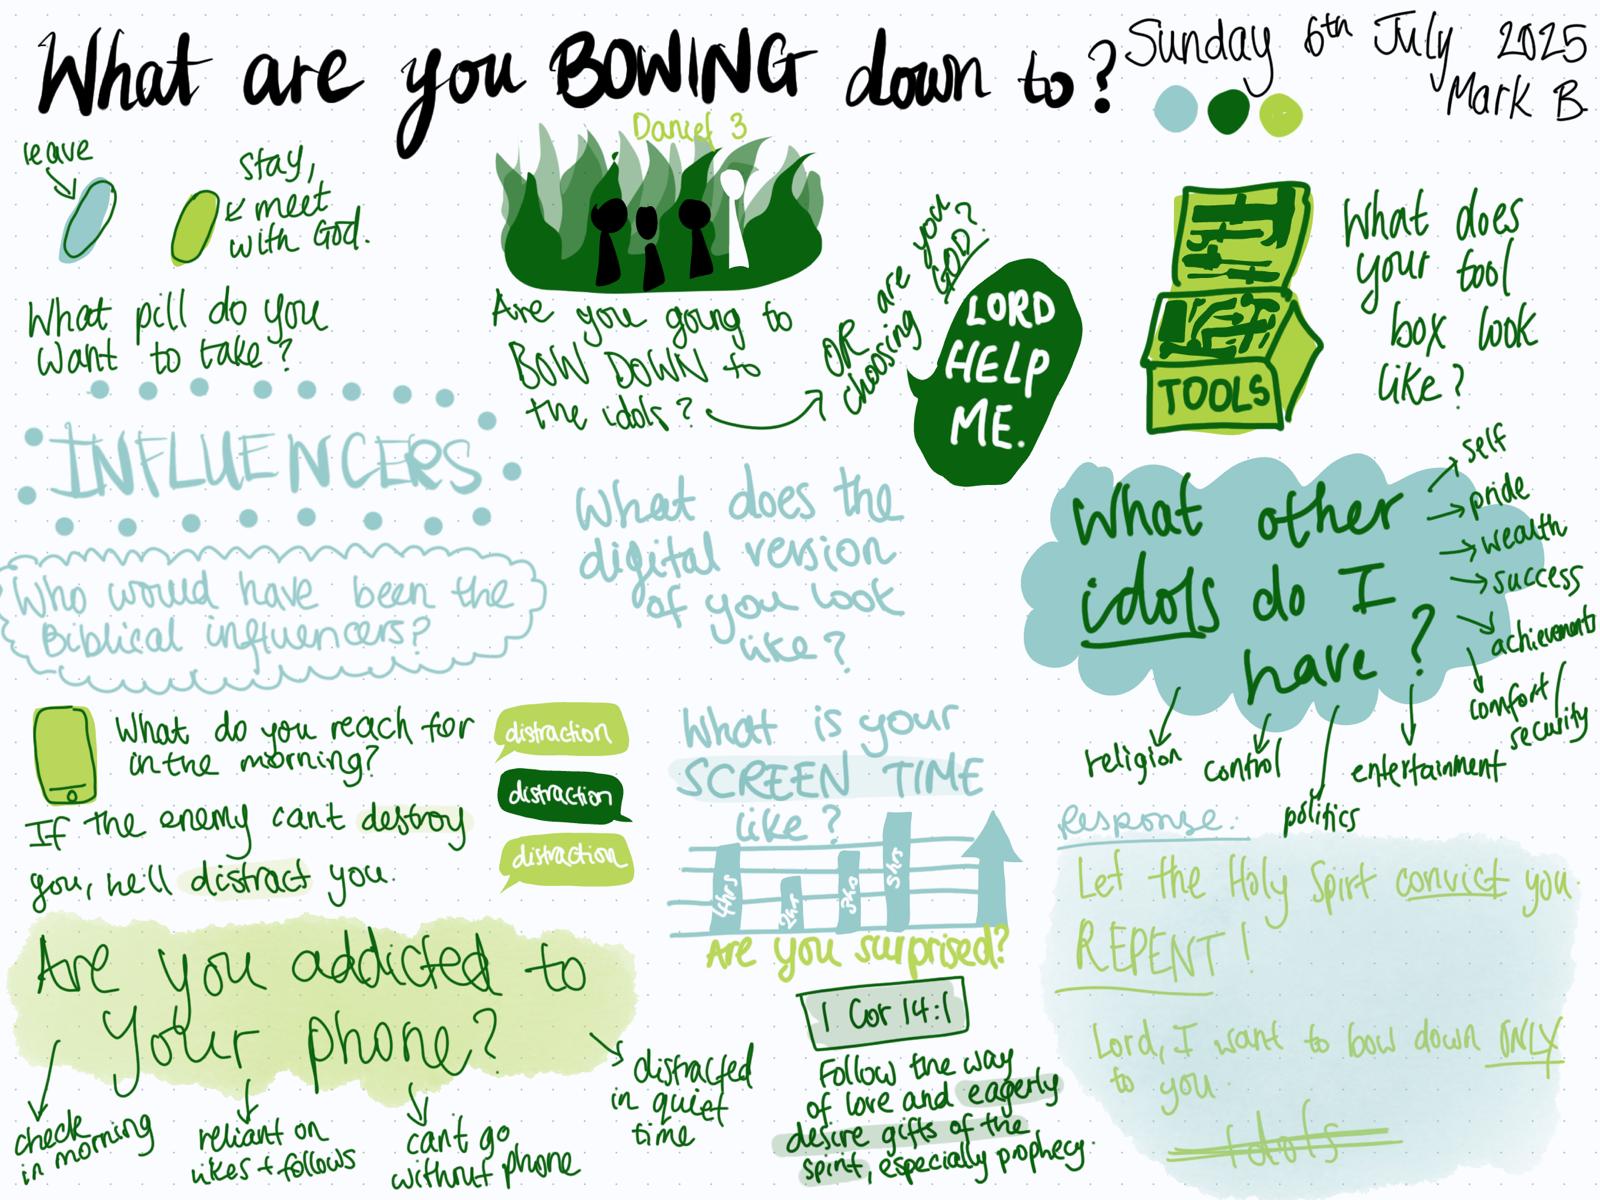 What are you BOWING down to?
Sunday 6th July 2025
Mark B.
Daniel 3
leave
stay,
meet
with God.
What pill do you
want to take?
Are you going to
BOW DOWN to
the idols?
OR are you
choosing GOD?
LORD
HELP
ME.
TOOLS
What does
your tool
box look
like?
INFLUENCERS
Who would have been the
Biblical influencers?
What does the
digital version
of you look
like?
What other
idols do I
have?
self
pride
wealth
success
achievements
comfort/
security
entertainment
politics
control
religion
What do you reach for
in the morning?
If the enemy can't destroy
you, he'll distract you.
distraction
distraction
distraction
What is your
SCREEN TIME
like?
4hrs
2hr
3hr
5hrs
Are you surprised?
Are you addicted to
your phone?
check
in morning
reliant on
likes + follows
can't go
without phone
distracted
in quiet
time
1 Cor 14:1
Follow the way
of love and eagerly
desire gifts of the
spirit, especially prophecy.
Response:
Let the Holy Spirt convict you.
REPENT!
Lord, I want to bow down ONLY
to you.
idols